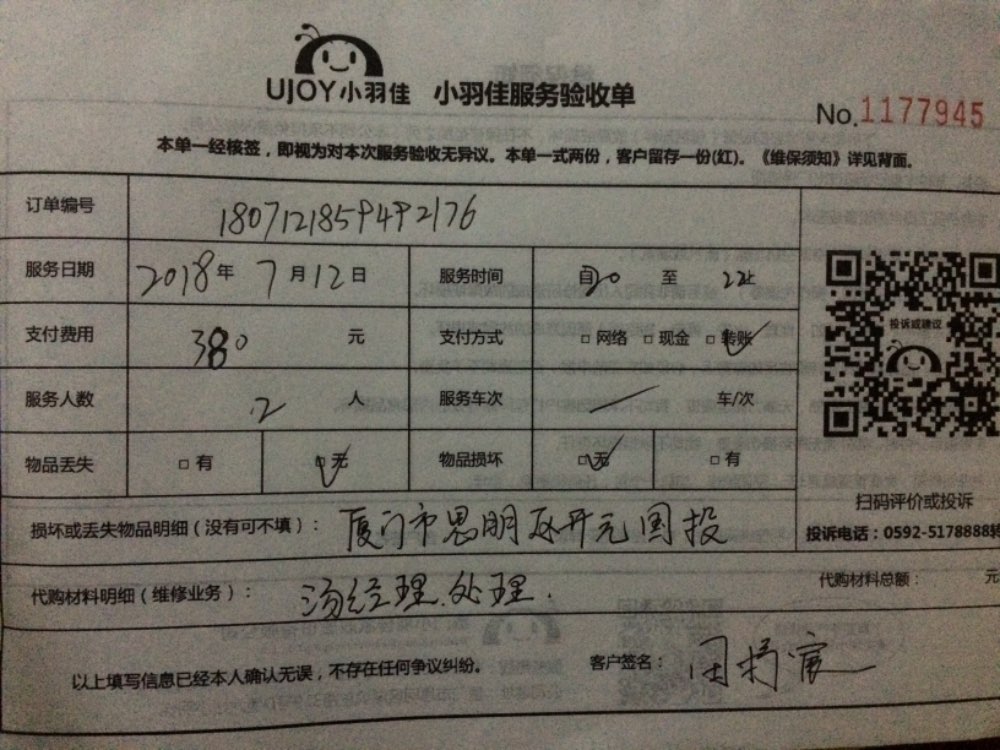 UJOY小羽佳 小羽佳服务验收单
No.1177945
本单一经核签，即视为对本次服务验收无异议。本单一式两份，客户留存一份(红)。《维保须知》详见背面。
订单编号 1807121859492176
服务日期 2018年7月12日 服务时间 自20至22止
支付费用 380元 支付方式 □网络 □现金 □转账
服务人数 2人 服务车次 车/次
物品丢失 □有 □无 物品损坏 □无 □有
投诉或建议
扫码评价或投诉
投诉电话：0592-5178888转
损坏或丢失物品明细（没有可不填）：厦门市思明区开元国投
代购材料明细（维修业务）：汤经理.处理. 代购材料总额： 元
以上填写信息已经本人确认无误，不存在任何争议纠纷。 客户签名：